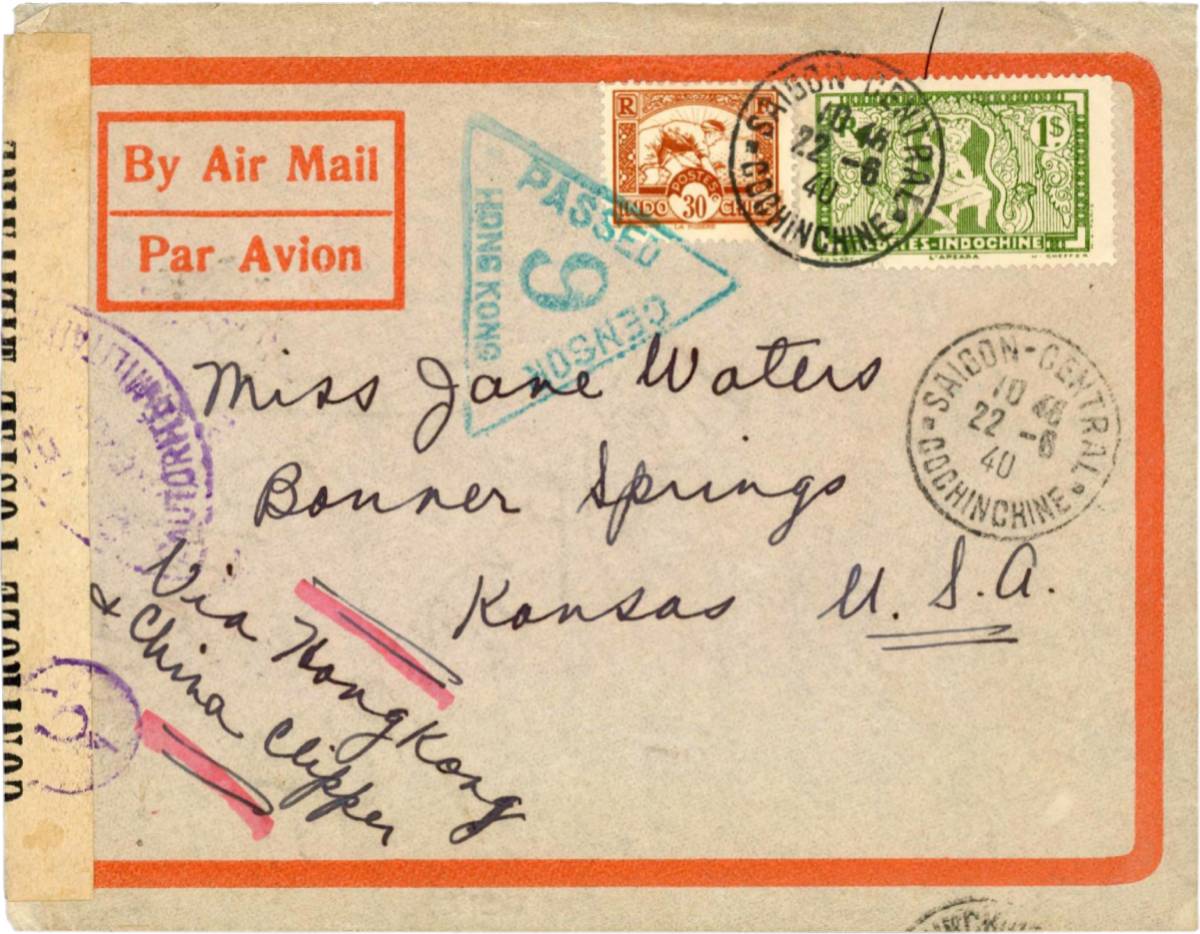 By Air Mail
Par Avion
R F
POSTES
INDO 30 CHINE
1$
POSTES-INDOCHINE
L'APSARA
SAIGON-CENTRAL
22 -6
40
COCHINCHINE
PASSED
HONG KONG
6
CENSOR
SAIGON-CENTRAL
22 -6
40
COCHINCHINE
CONTROLE POSTAL MILITAIRE
Miss Jane Waters
Bonner Springs
Kansas U.S.A.
Via Hong Kong
& China Clipper